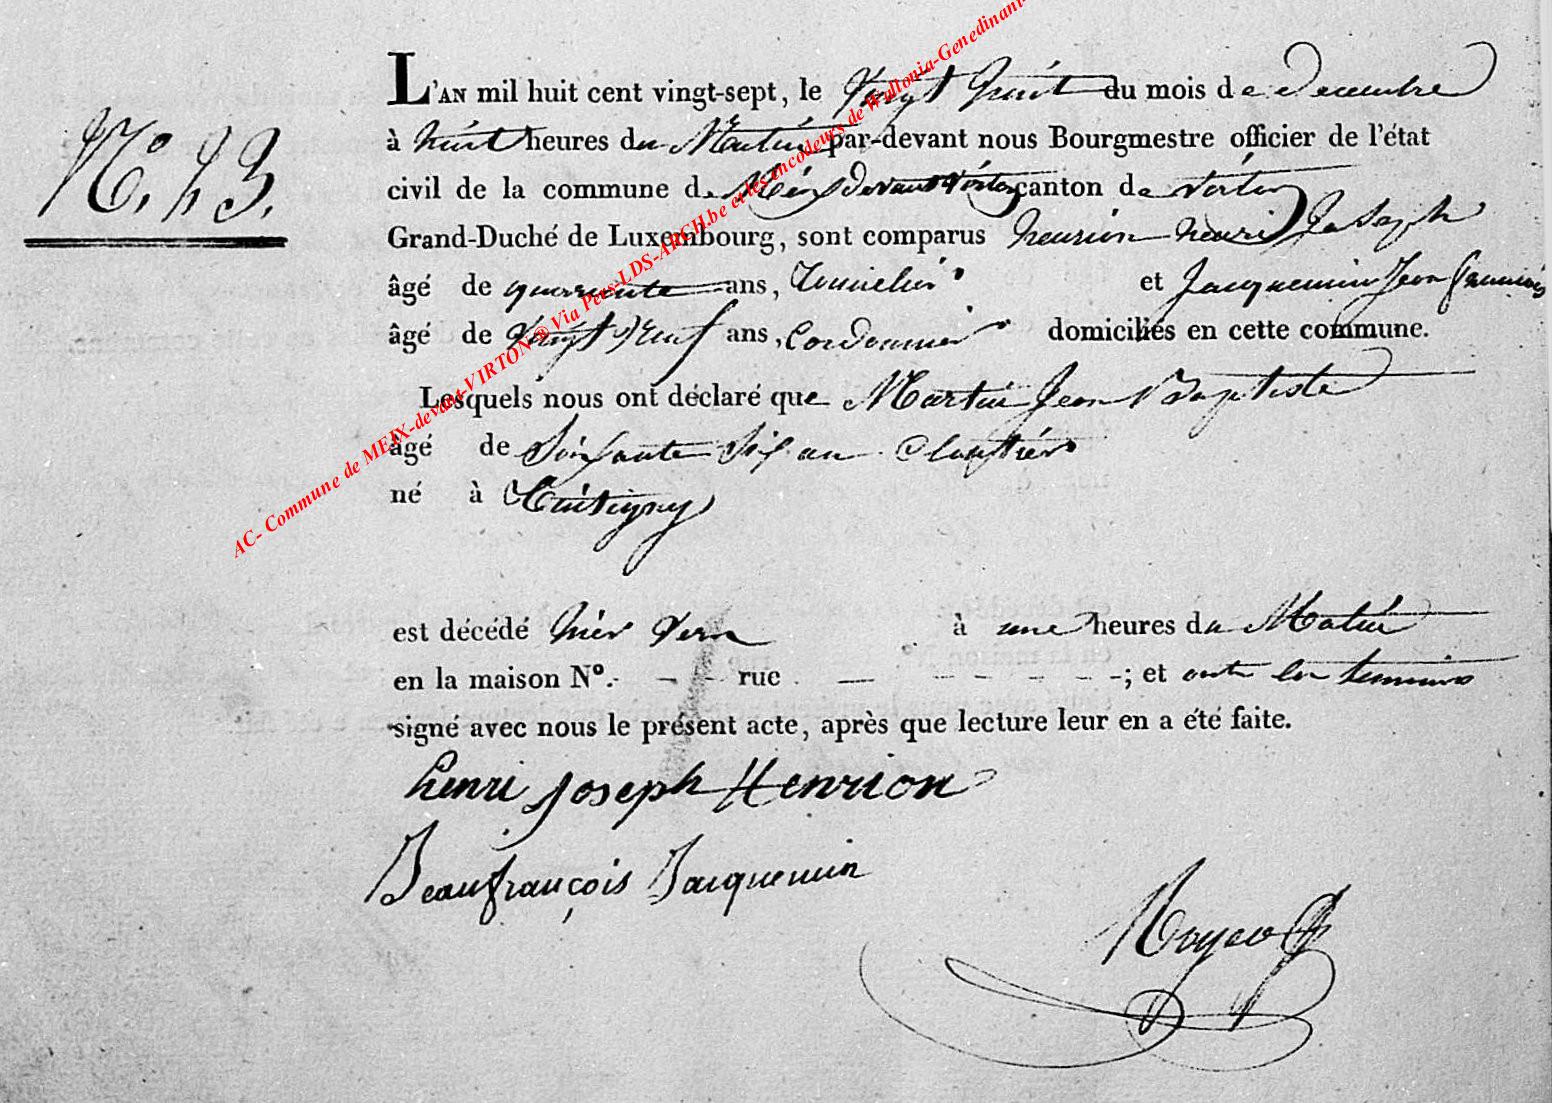 N.° 43.
L'AN mil huit cent vingt-sept, le Vingt huit du mois de decembre
à huit heures du Matin par-devant nous Bourgmestre officier de l'état
civil de la commune de Meix devant Virton canton de virton
Grand-Duché de Luxembourg, sont comparus henrion henri Joseph
âgé de quarrante ans, Tonnelier et Jacquemin Jean francois
âgé de Vingt neuf ans, Cordonnier domiciliés en cette commune.
Lesquels nous ont déclaré que Martin Jean Baptiste
âgé de Soixante Six an Cloutier
né à
est décédé hier vers à une heures du Matin
en la maison N°. - - - rue - - - - - - ; et ont les temoins
signé avec nous le présent acte, après que lecture leur en a été faite.
henri joseph Henrion
Jean françois Jacquemin
AC- Commune de MEIX-devant-VIRTON ® Via Pers-LDS-ARCH.be et les encodeurs de Wallonia-Genedinant